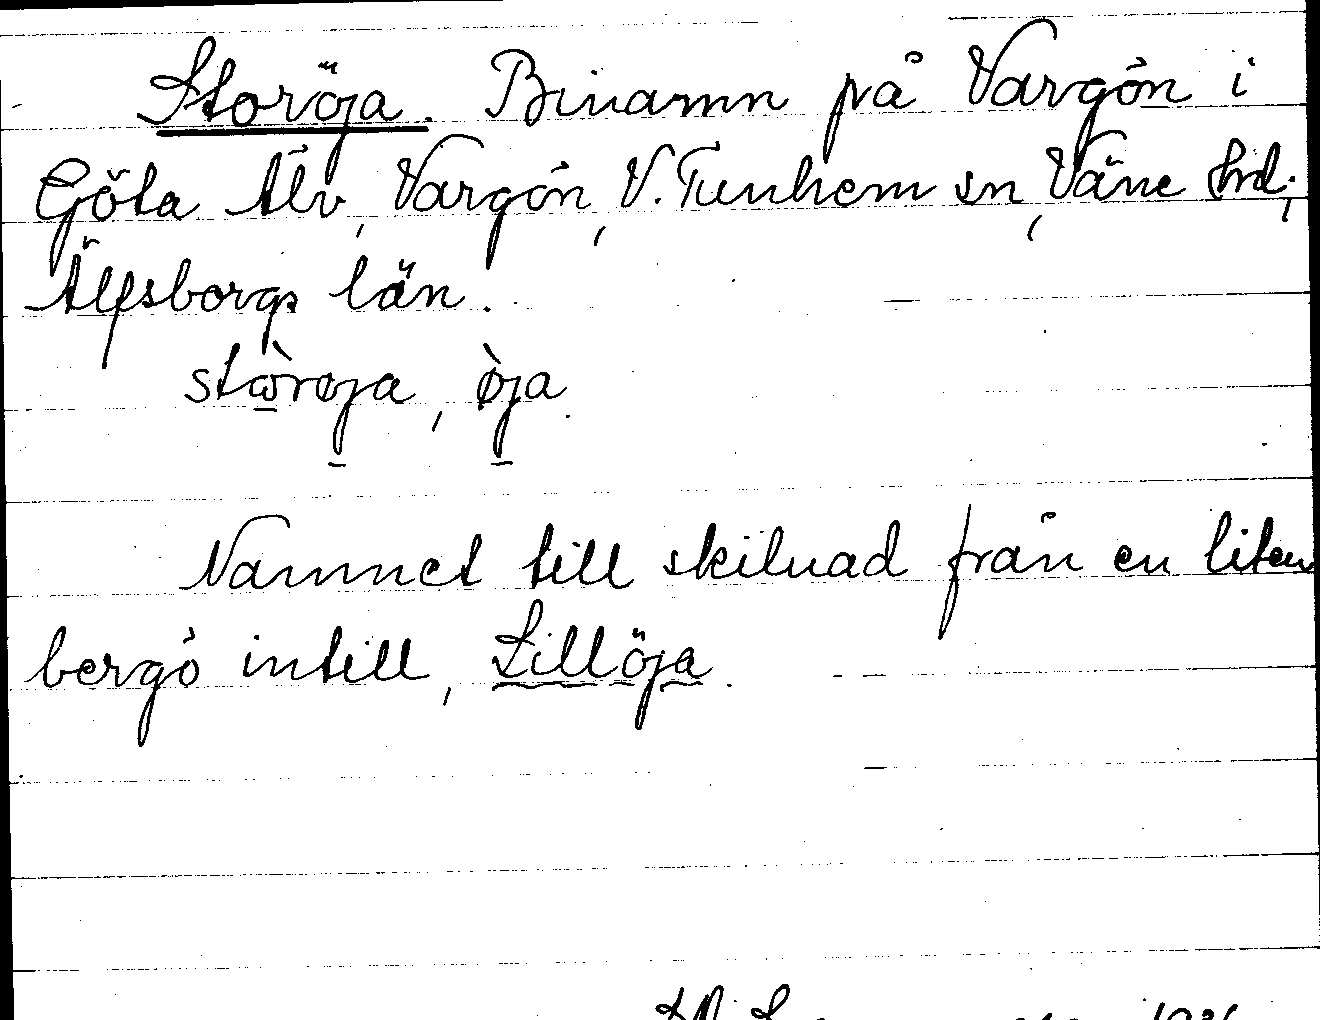 Storöja. Binamn på Vargön i
Göta Älv, Vargön, V. Tunhem sn, Väne hd,
Älfsborgs län.
stὼ̲røja, øja
Namnet till skilnad från en liten
bergö intill, Lillöja.